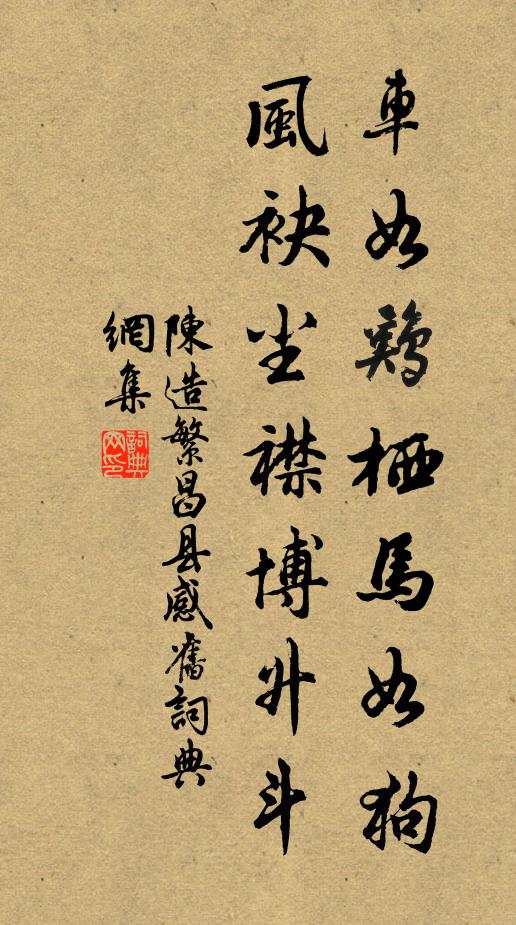 車如鷄栖馬如狗
風袂尘襟博升斗
陳造繁昌县感舊詞典
網集
詞典网印